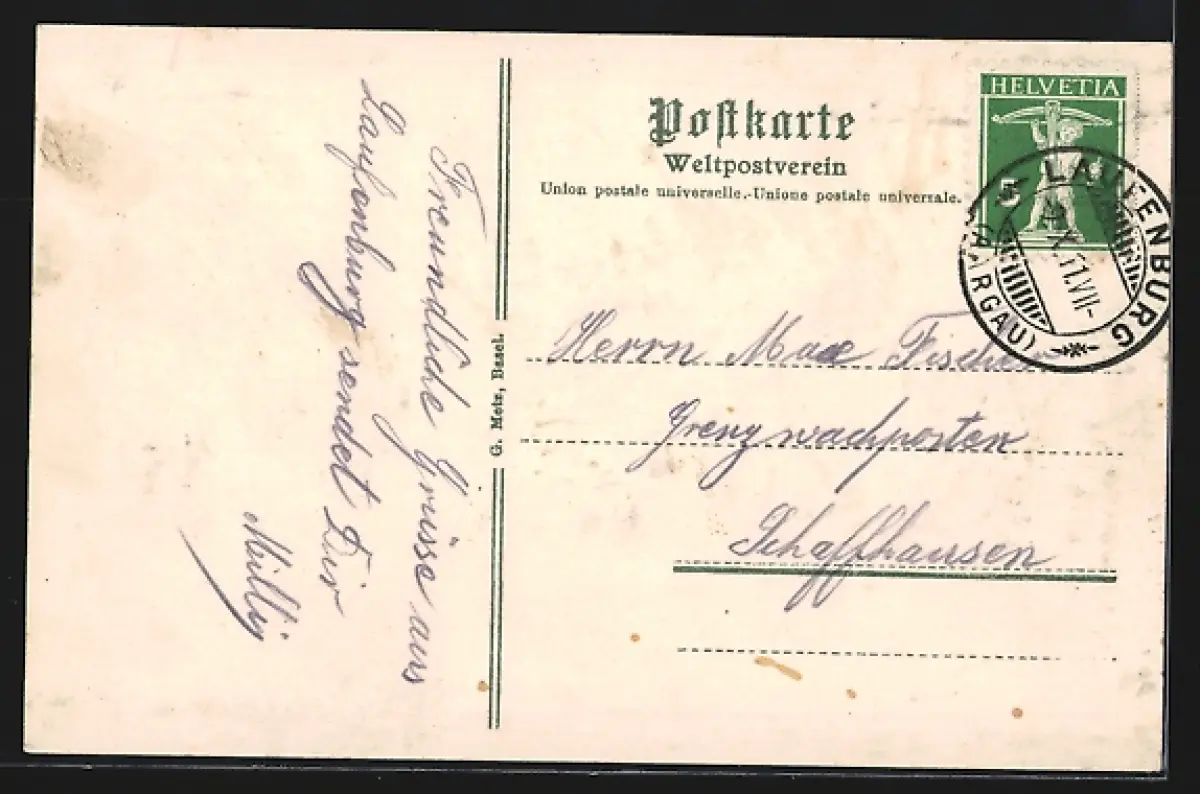 Postkarte
Weltpostverein
Union postale universelle.-Unione postale universale.
HELVETIA
5
LAUFENBURG
(AARGAU)
X.11.VII-
G. Metz, Basel.
Freundliche Grüsse aus
Laufenburg sendet Dir
Willy
Herrn Max Fischer
Grenzwachposten
Schaffhausen